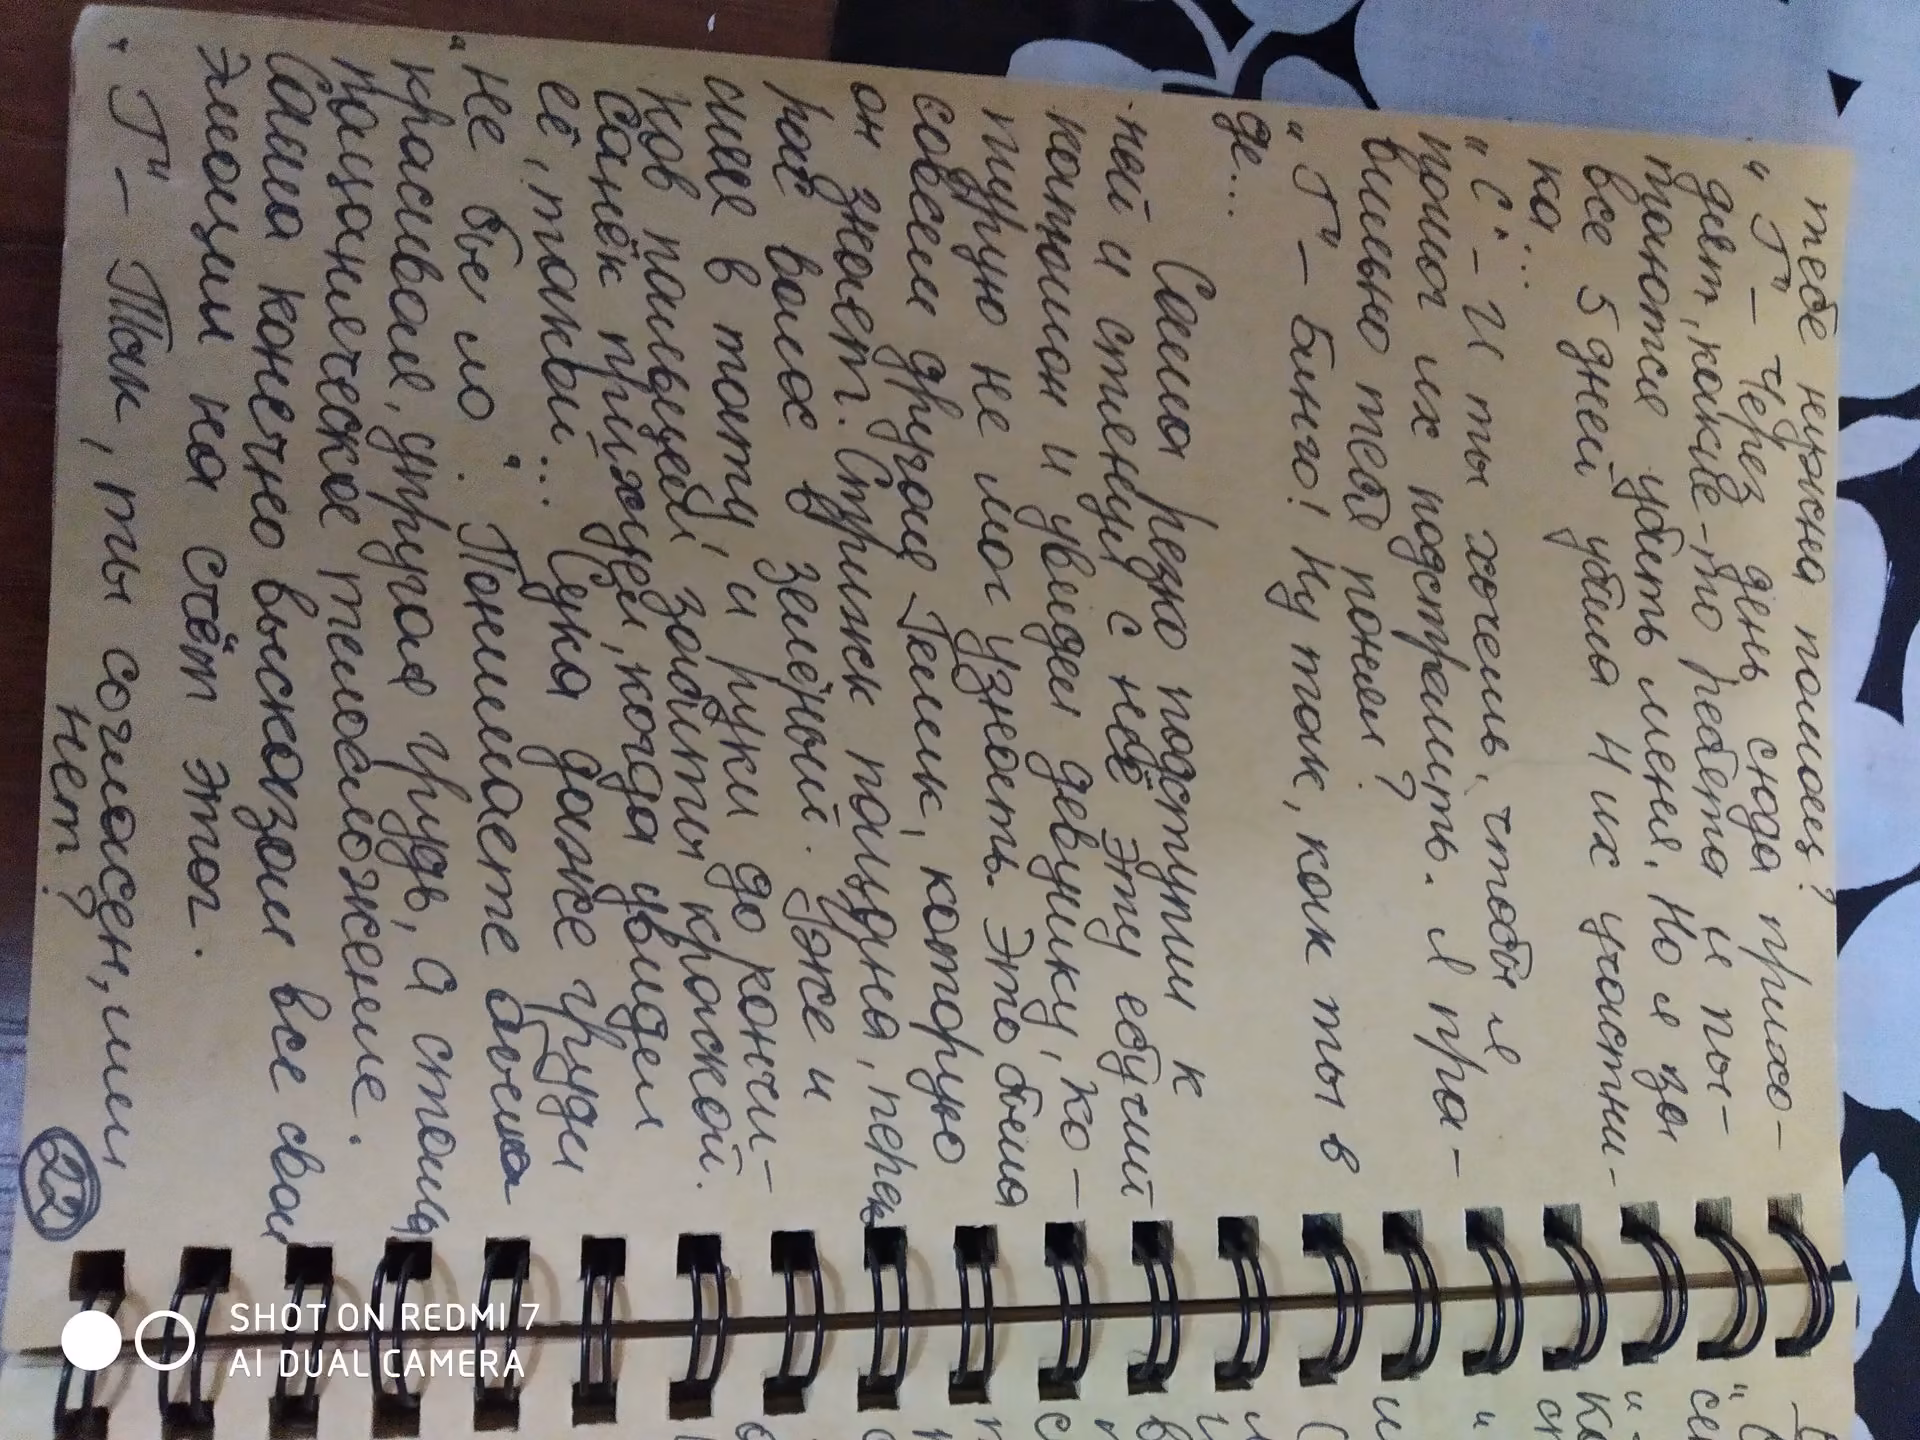 тебе нужна помощ?
" Г" – Через день сюда прихо-
дят, какие-то ребята и пы-
таются убить меня. Но я за
все 5 дней убила 4 их участни-
ка...
"С" – И ты хочешь, чтобы я
помог их подстрелить. Я пра-
вильно тебя понял?
"Г" – Бинго! Ну так, как ты в
де...
Саша резко подступил к
ней и стленул с неё эту ебучий
капюшон и увидел девушку, ко-
торую не мог узнать. Это была
совсем другая Гелик, которую
он знает. Стрижк пацана, перек
рас волос в зелёный. Уже и
шея в тату и руки до кончи-
ков пальцей забиты краской.
Санёк прихуел, когда увидел
её, такой... Сука даже груди
"не бы ло". Понимаете была
красивая, упругая грудь, а стоит
пацаническое телосложение.
Саша конечно высказал все свои
эмоции на счёт этог.
"Г" – Так, ты согласен, или
нет?
22
SHOT ON REDMI 7
AI DUAL CAMERA